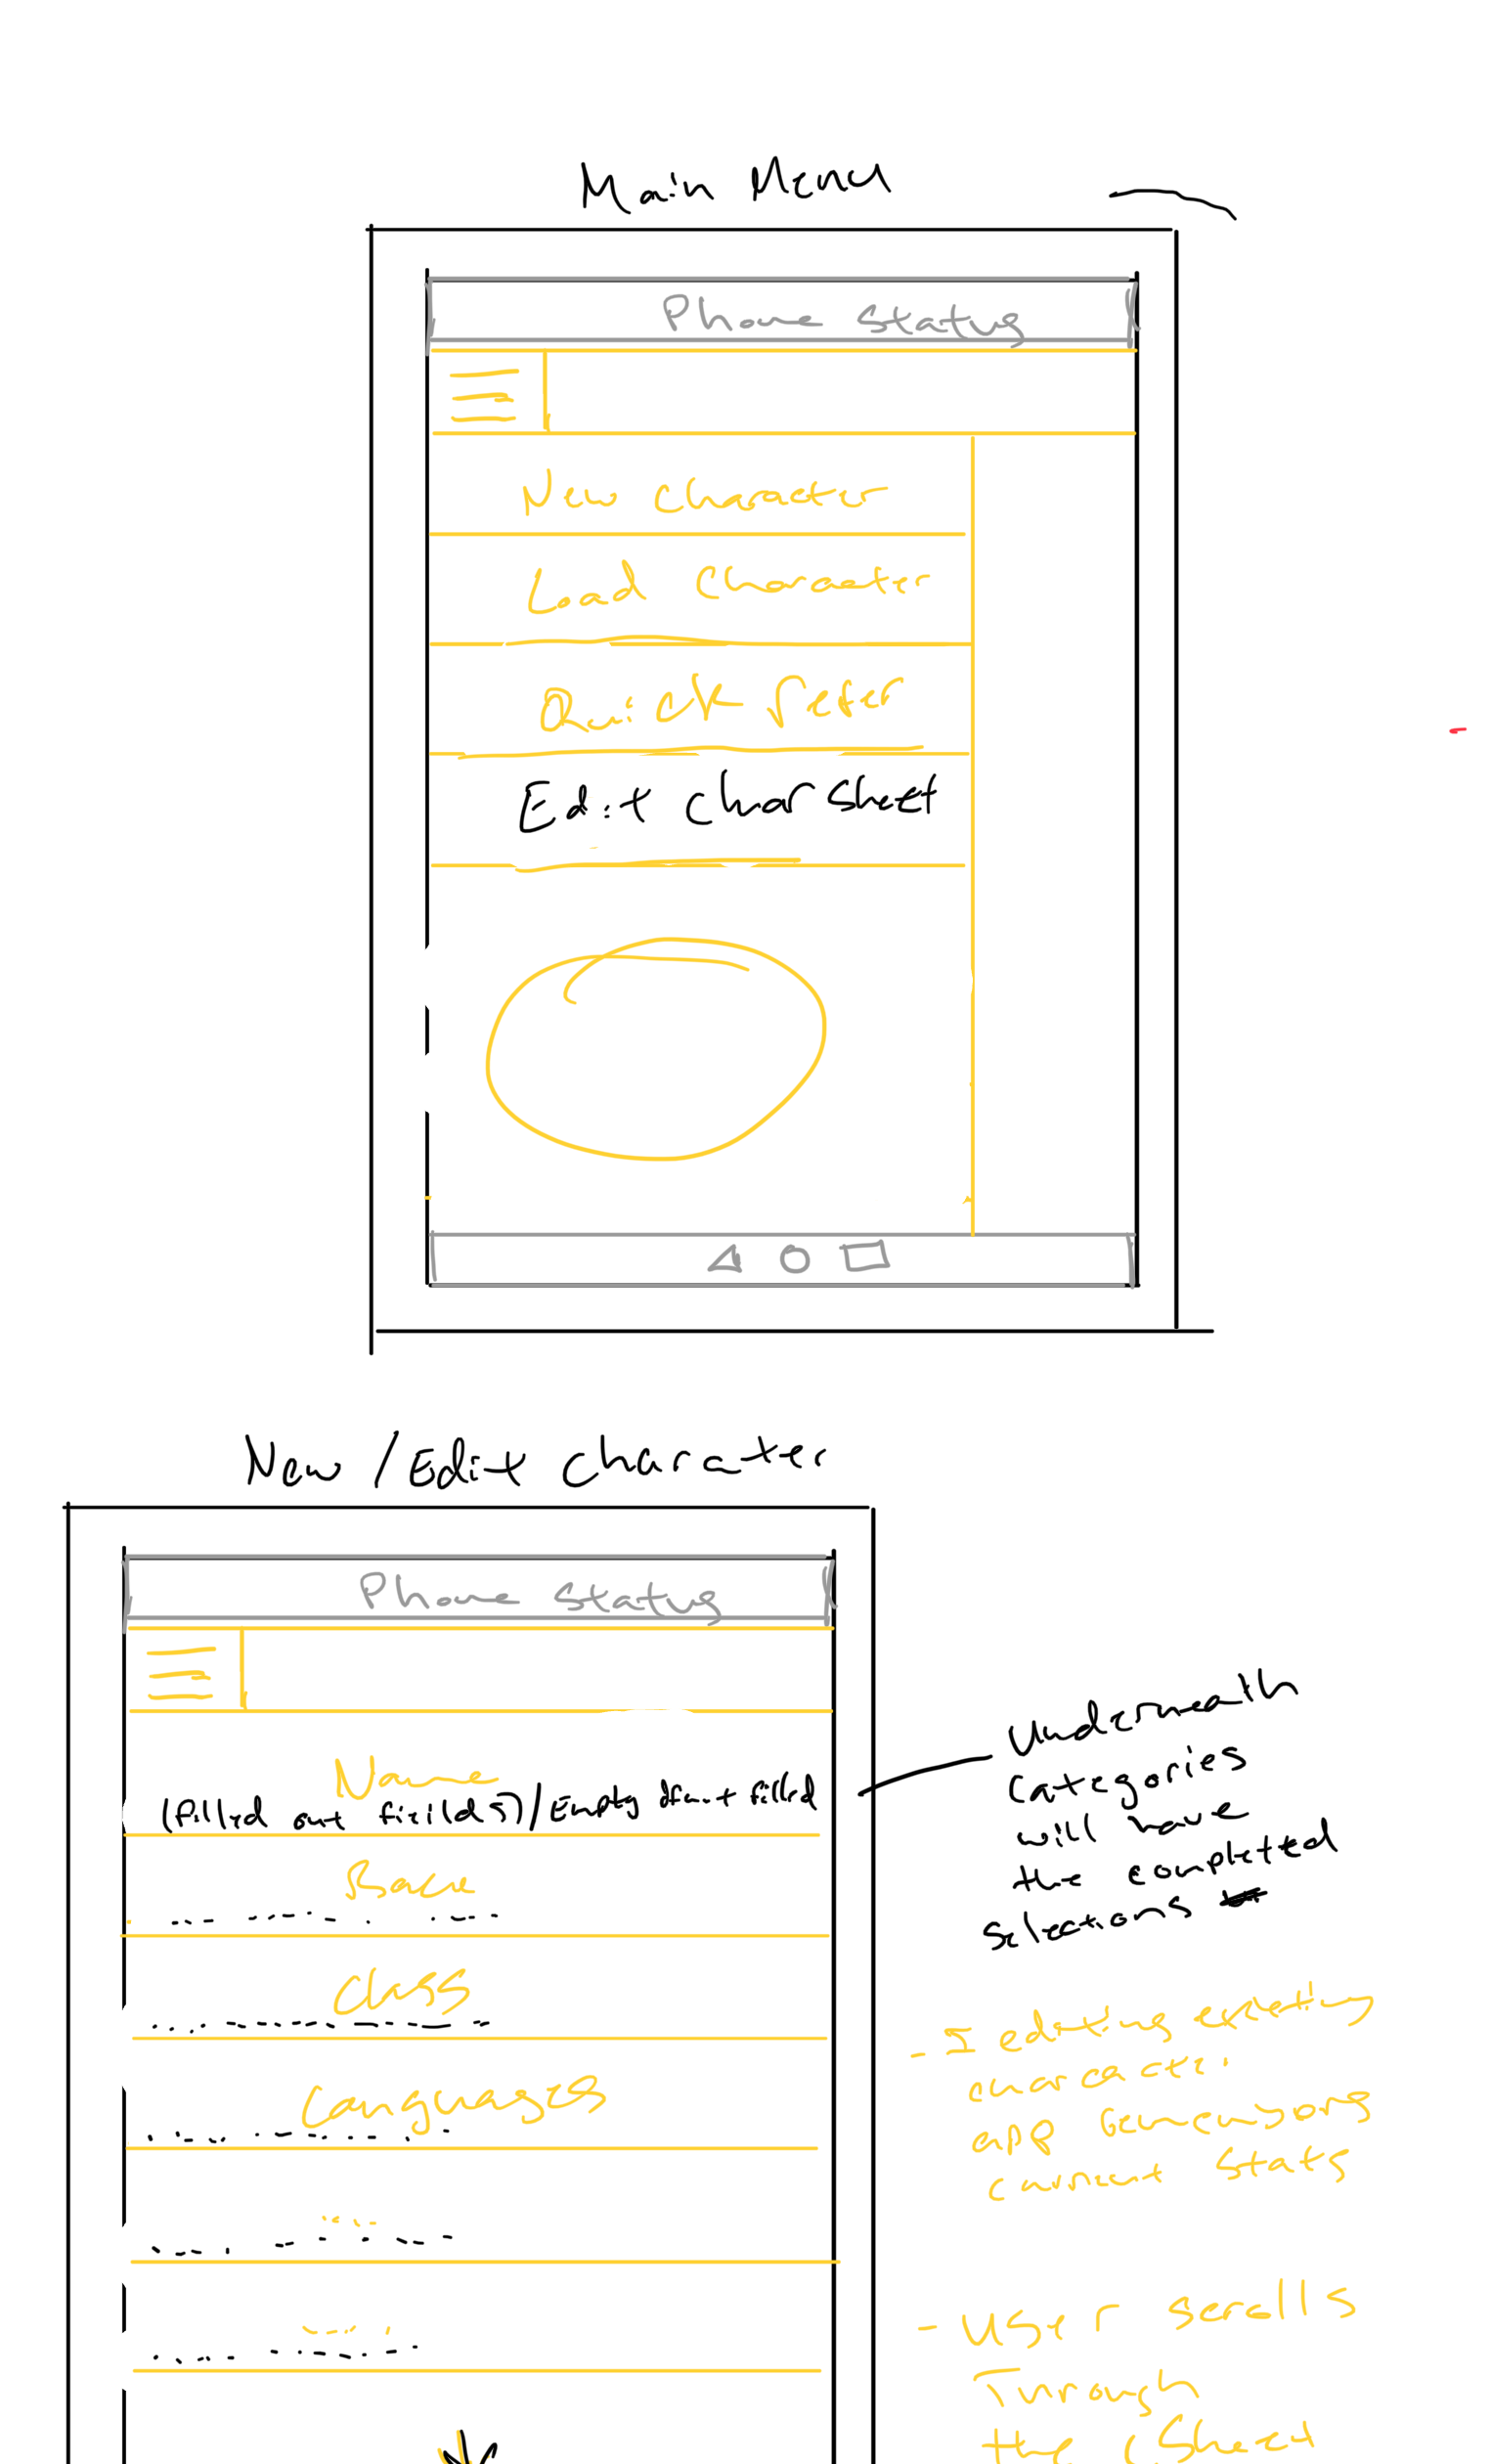 Main Menu
Phone status
New Character
Load Character
Quick Refer
Edit Char Sheet
New / Edit Character
Phone status
Name
(filled out fields) /
Race
Class
Languages
underneath
Categories
will have
the completed
selections
- I editing existing
character
app
current stats
- User scrolls
Through
the Sheet